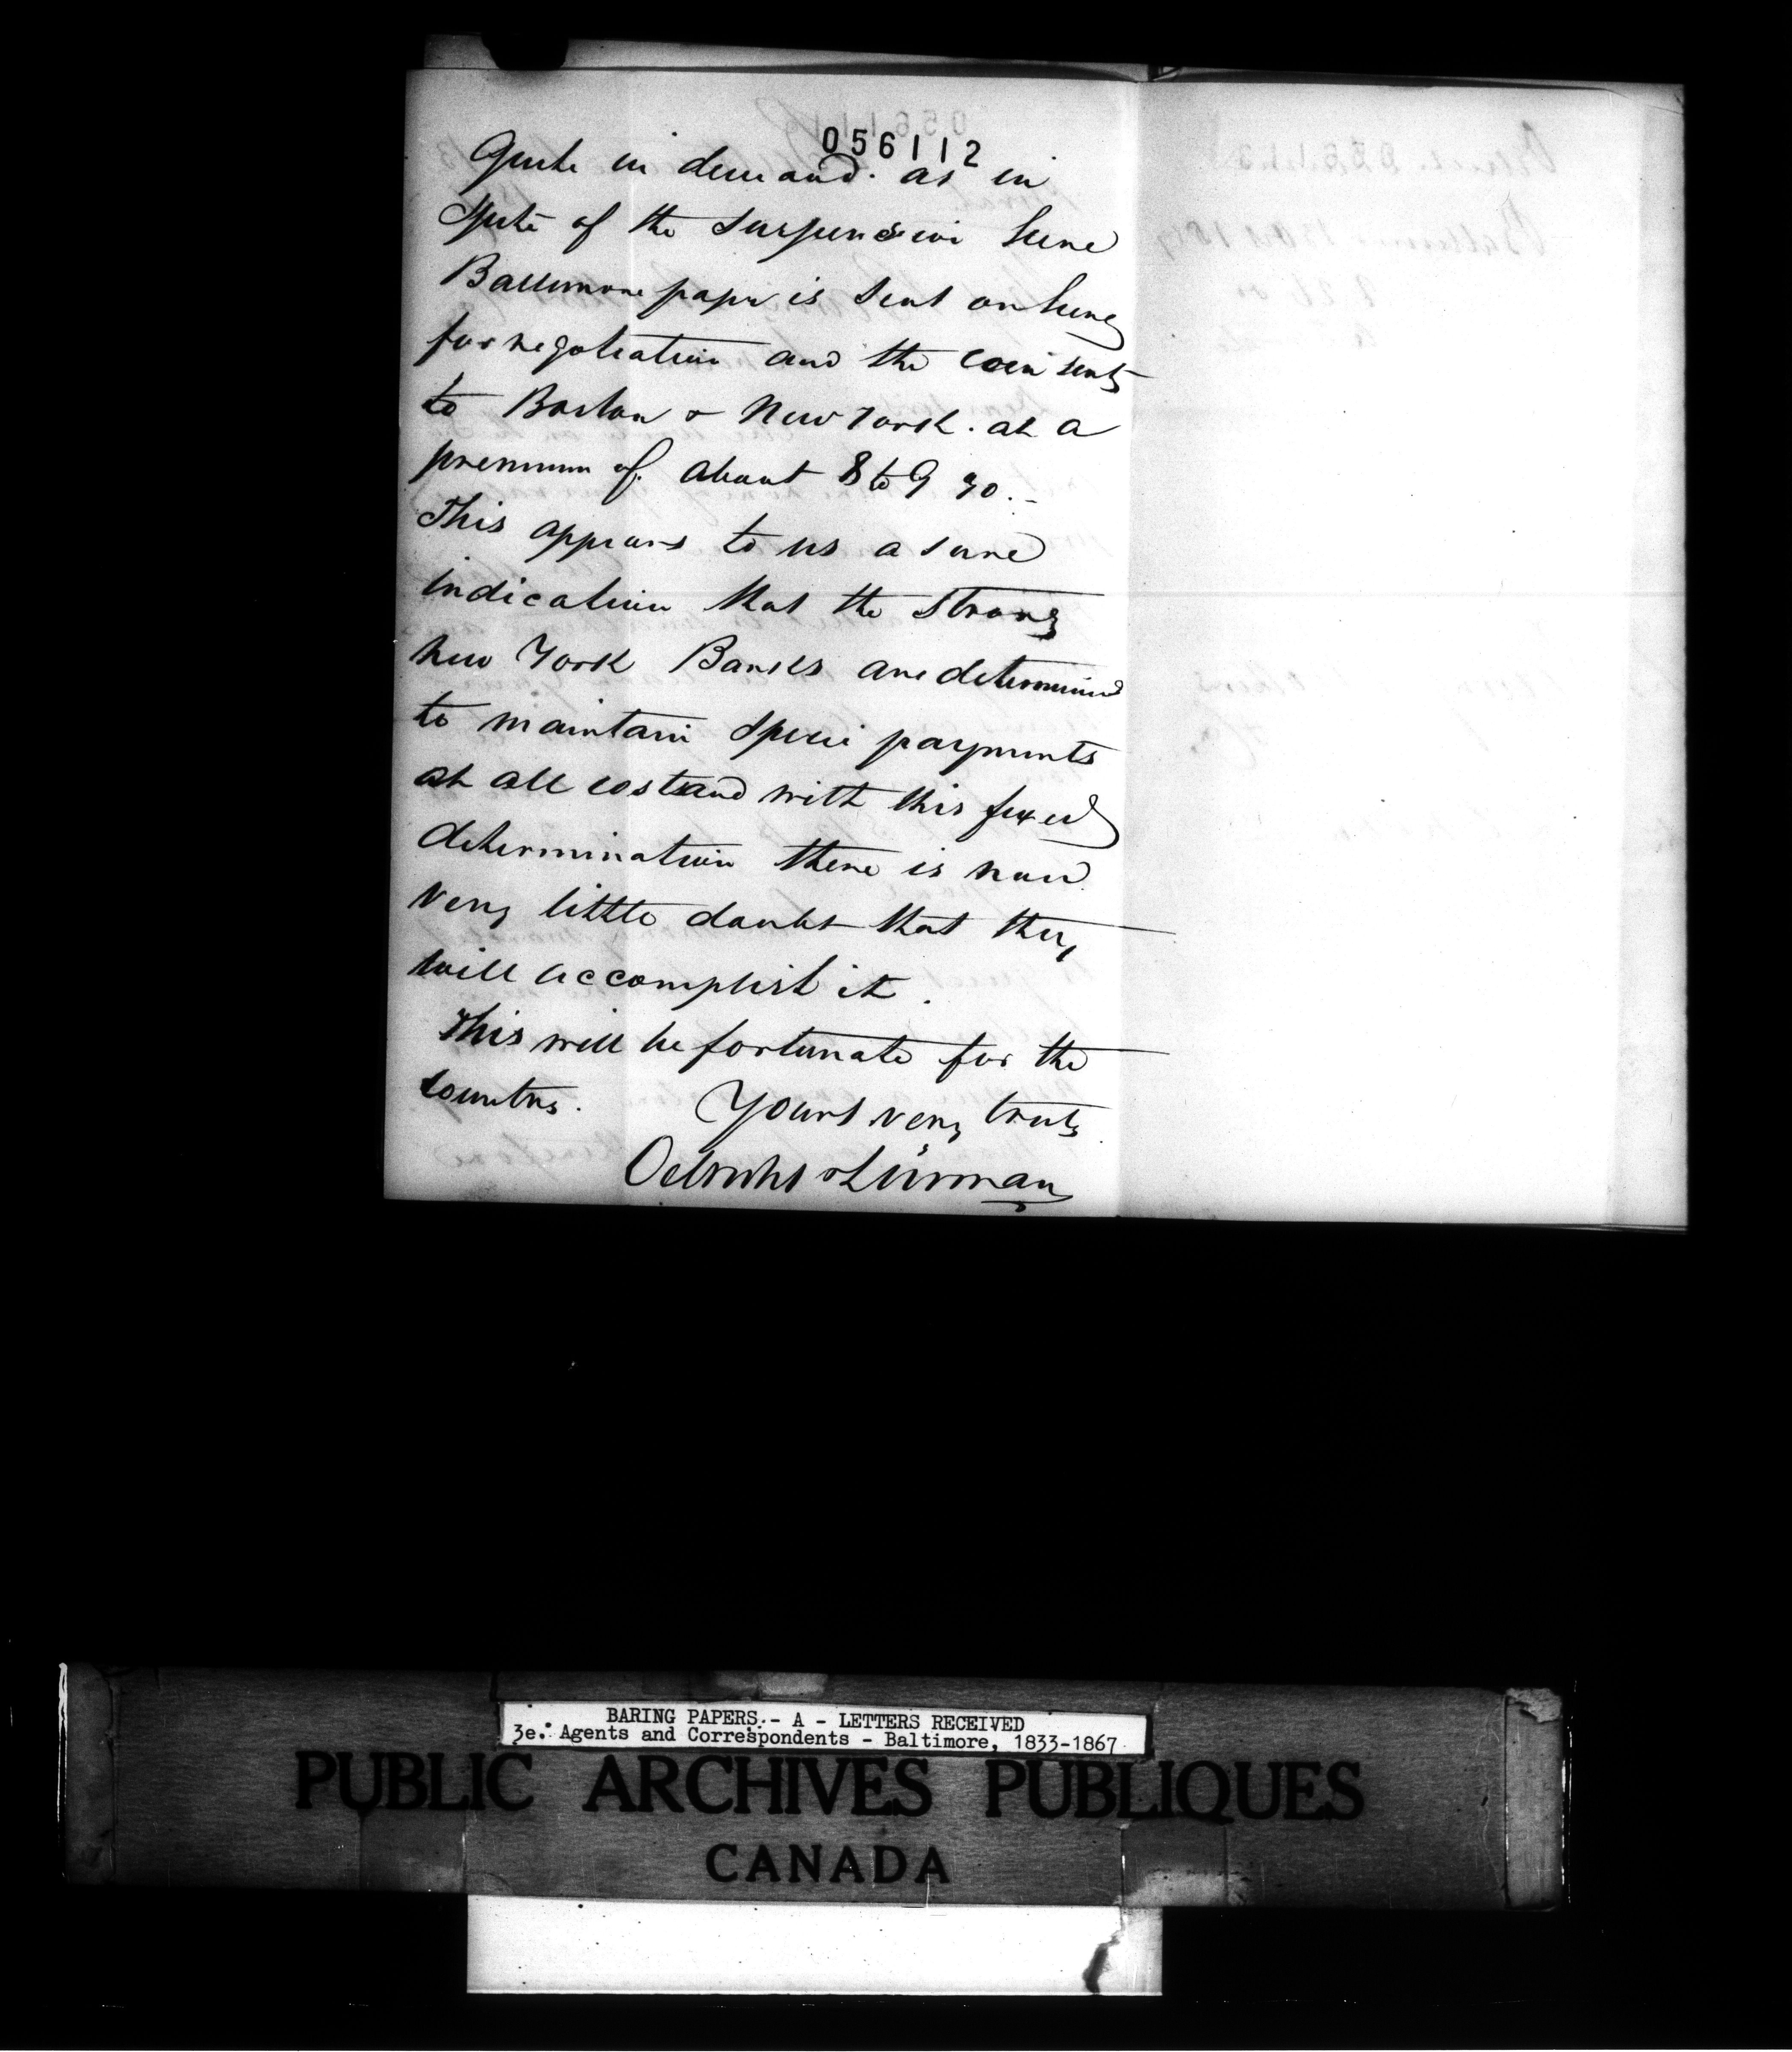 056112
Quite in demand. as in
Spite of the Suspension here
Baltimore paper is sent on here
for negotiation and the coin sent
to Boston & New York. at a
premium of about 8 to 9 %.-
This appears to us a sure
indication that the strong
New York Banks are determined
to maintain Specie payments
at all cost and with this fixed
determination there is now
very little doubt that they
will accomplish it.
This will be fortunate for the
country. Yours very truly
Oelrichs & Lürman
BARING PAPERS.- A - LETTERS RECEIVED
3e. Agents and Correspondents - Baltimore, 1833-1867
PUBLIC ARCHIVES PUBLIQUES
CANADA